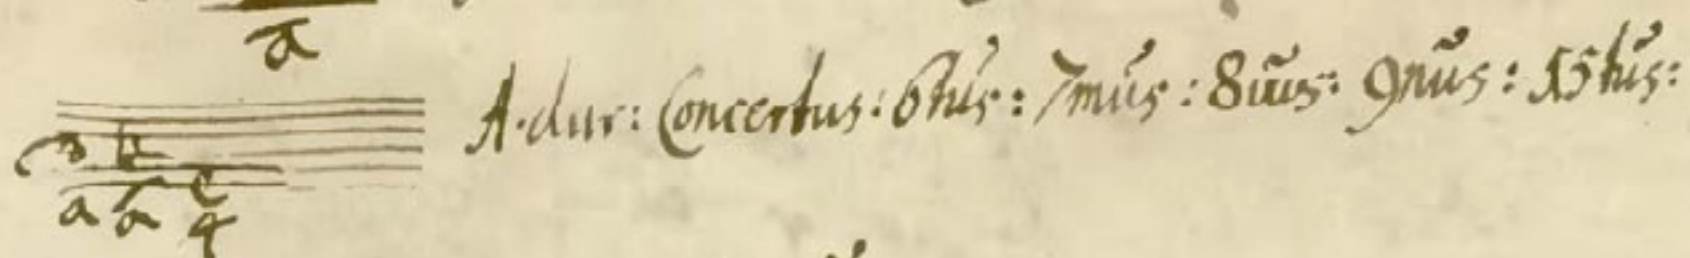 a
A. dur: Concertus: 6tus: 7mus: 8vus: 9nus: 15tus:
a a